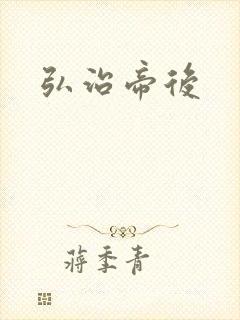 弘治帝後
蔣季青